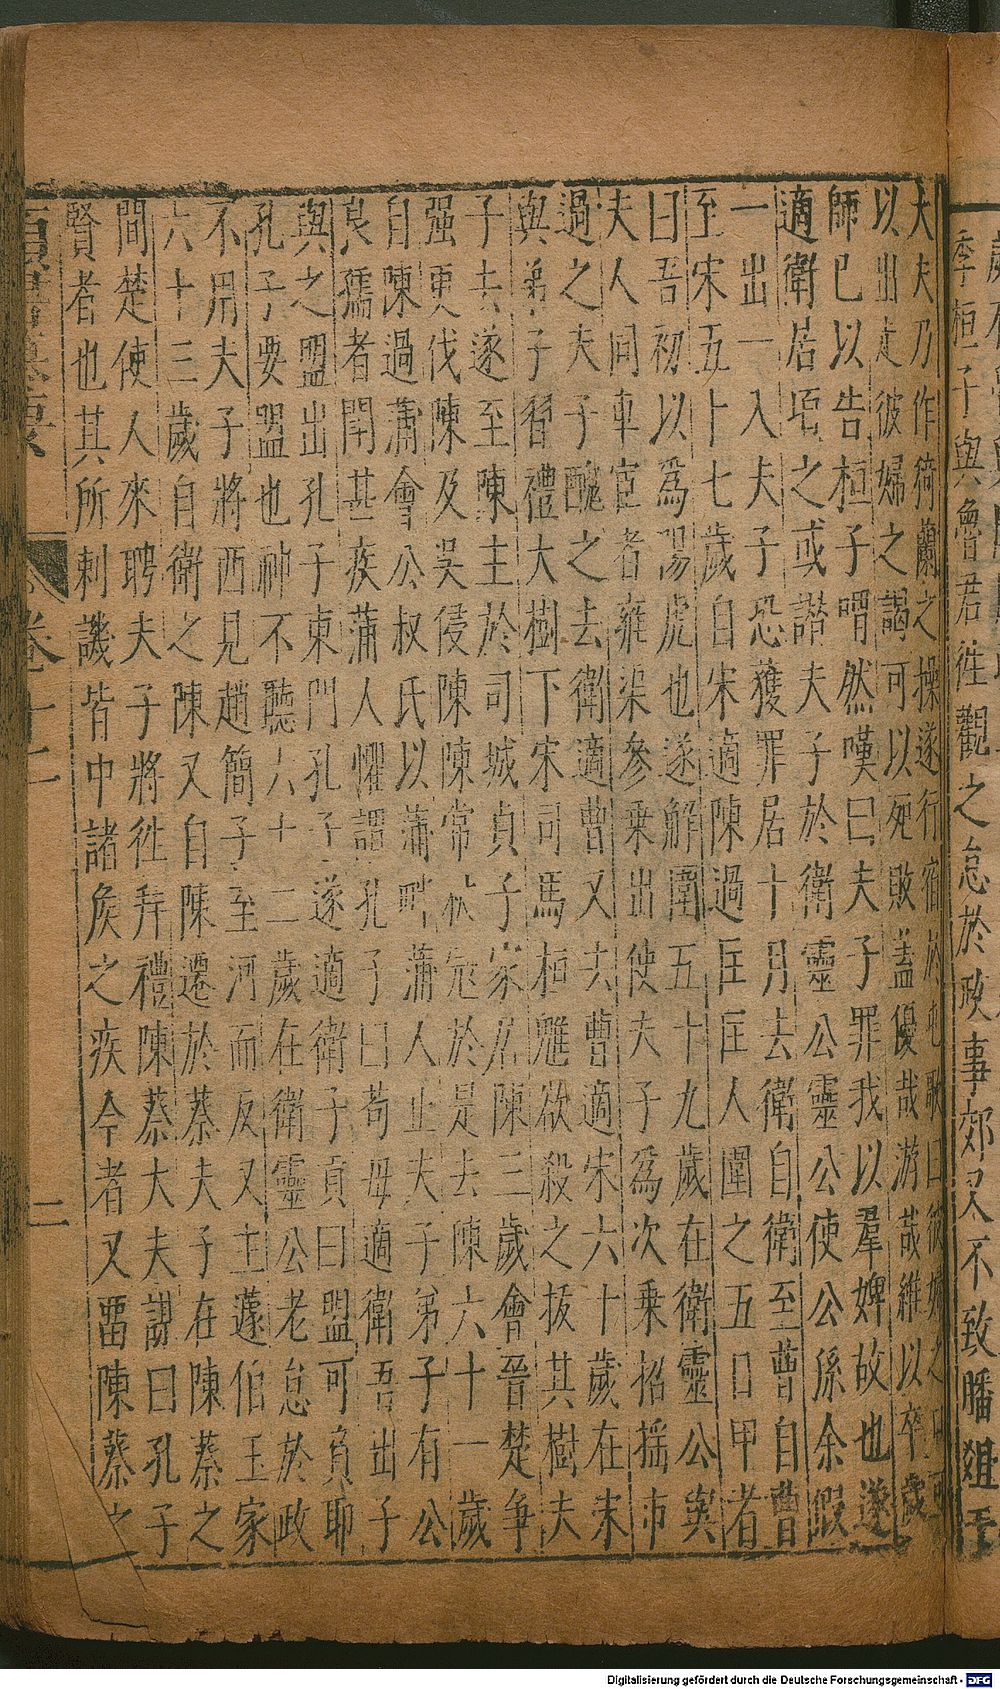 季桓子與魯君往觀之怠於政事郊又不致膰俎于
大夫乃作猗蘭之操遂行宿於屯歌曰彼婦之口可
以出走彼婦之謁可以死敗蓋優哉游哉維以卒歲
師已以告桓子喟然嘆曰夫子罪我以羣婢故也遂
適衛居頃之或譖夫子於衛靈公靈公使公孫余假
一出一入夫子恐獲罪居十月去衛自衛至曹自曹
至宋五十七歲自宋適陳過匡匡人圍之五日甲者
曰吾初以爲陽虎也遂解圍五十九歲在衛靈公與
夫人同車宦者雍渠參乘出使夫子爲次乘招搖市
過之夫子醜之去衛適曹又去曹適宋六十歲在宋
與弟子習禮大樹下宋司馬桓魋欲殺之拔其樹夫
子去遂至陳主於司城貞子家居陳三歲會晉楚爭
强更伐陳及吳侵陳陳常被寇於是去陳六十一歲
自陳過蒲會公叔氏以蒲畔蒲人止夫子弟子有公
良孺者鬥甚疾蒲人懼謂孔子曰苟毋適衛吾出子
與之盟出孔子東門孔子遂適衛子貢曰盟可負耶
孔子要盟也神不聽六十二歲在衛靈公老怠於政
不用夫子將西見趙簡子至河而反又主蘧伯玉家
六十三歲自衛之陳又自陳遷於蔡夫子在陳蔡之
間楚使人來聘夫子將往拜禮陳蔡大夫謀曰孔子
賢者也其所刺譏皆中諸侯之疾今者又畱陳蔡之
卷十二
二
Digitalisierung gefördert durch die Deutsche Forschungsgemeinschaft - DFG